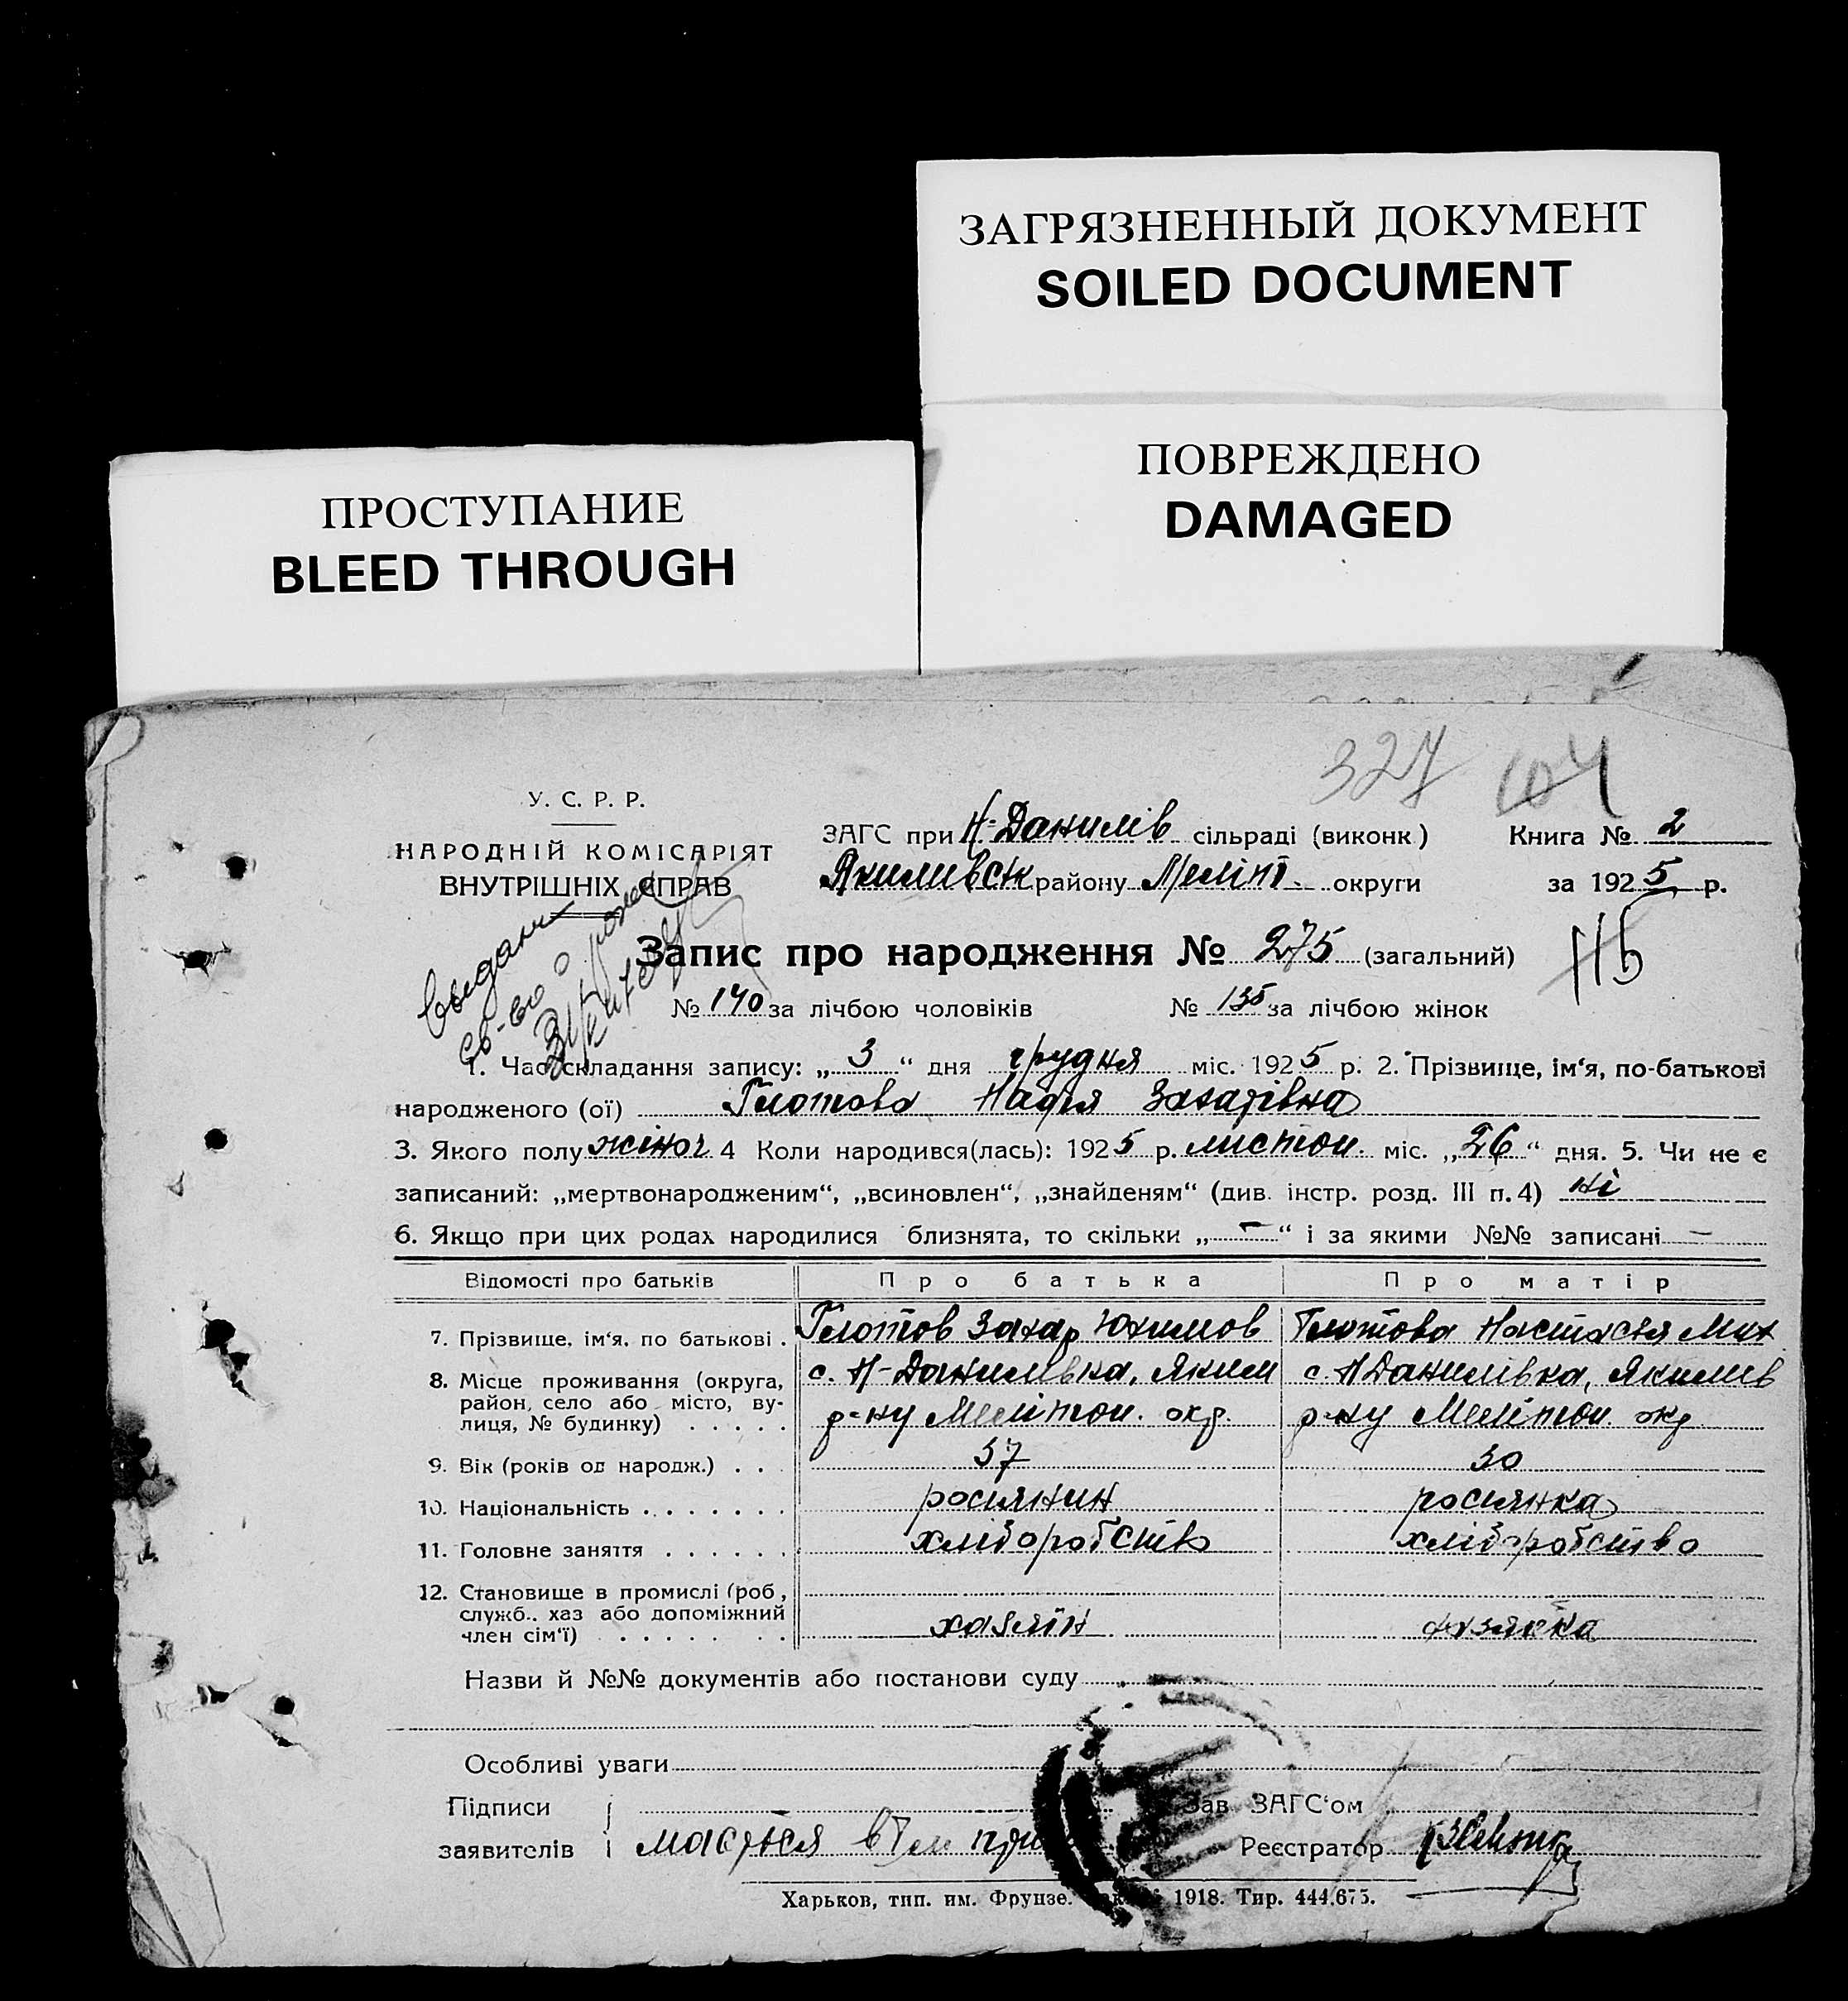 ЗАГРЯЗНЕННЫЙ ДОКУМЕНТ
SOILED DOCUMENT
ПОВРЕЖДЕНО
DAMAGED
ПРОСТУПАНИЕ
BLEED THROUGH
327 104
У. С. Р. Р.
НАРОДНІЙ КОМІСАРІЯТ
ВНУТРІШНІХ СПРАВ
ЗАГС при Н-Данилів сільраді (виконк) Книга № 2
Якимивськ району Меліт. округи за 1925 р.
выдано
св-во о
Запис про народження № 275 (загальний) 115
№ 140 за лічбою чоловіків № 135 за лічбою жінок
1. Час складання запису: „3“ дня грудня міс. 1925 р. 2. Прізвище, ім‘я, по-батькові
народженого (ої) Глотова Надія Захарівна
3. Якого полу жіноч 4 Коли народився(лась): 1925 р. листоп. міс. „26“ дня. 5. Чи не є
записаний: „мертвонародженим“, „всиновлен“, „знайденям“ (див. інстр. розд. III п. 4) ні
6. Якщо при цих родах народилися близнята, то скільки „—“ і за якими №№ записані —
Відомості про батьків Про батька Про матір
7. Прізвище, ім‘я, по батькові . Глотов Захар Юхимов Глотова Настасія Мих
8. Місце проживання (округа, район, село або місто, вулиця, № будинку) . . . . . с. Н-Данилівка, Яким с. Н Данилівка, Якимив
р-ну Мелітоп. окр. р-ну Мелітоп. окр
9. Вік (років од народж.) . . . 37 30
10. Національність . . . . . . . росіянин росіянка
11. Головне заняття . . . . . . хліборобство хліборобство
12. Становище в промислі (роб, служб.. хаз або допоміжний член сім‘ї) . . . . . . . хазяїн хазяйка
Назви й №№ документів або постанови суду
Особливі уваги
Підписи Зав ЗАГС‘ом
заявителів Реєстратор
Харьков, тип. им. Фрунзе. 1918. Тир. 444.675.